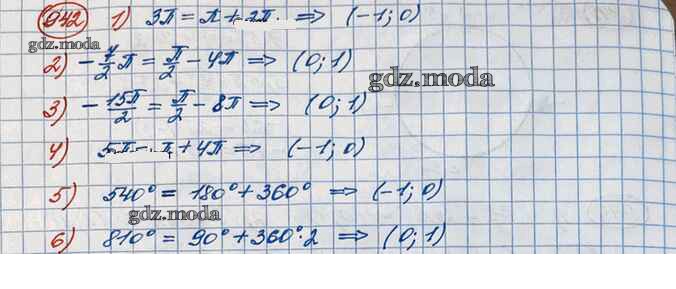 942 1) 3π = π + 2π ⇒ (-1; 0)
gdz.moda
2) -7/2 π = π/2 - 4π ⇒ (0; 1)
gdz.moda
3) -15π/2 = π/2 - 8π ⇒ (0; 1)
4) 5π - π + 4π ⇒ (-1; 0)
5) 540° = 180° + 360° ⇒ (-1; 0)
gdz.moda
6) 810° = 90° + 360°·2 ⇒ (0; 1)